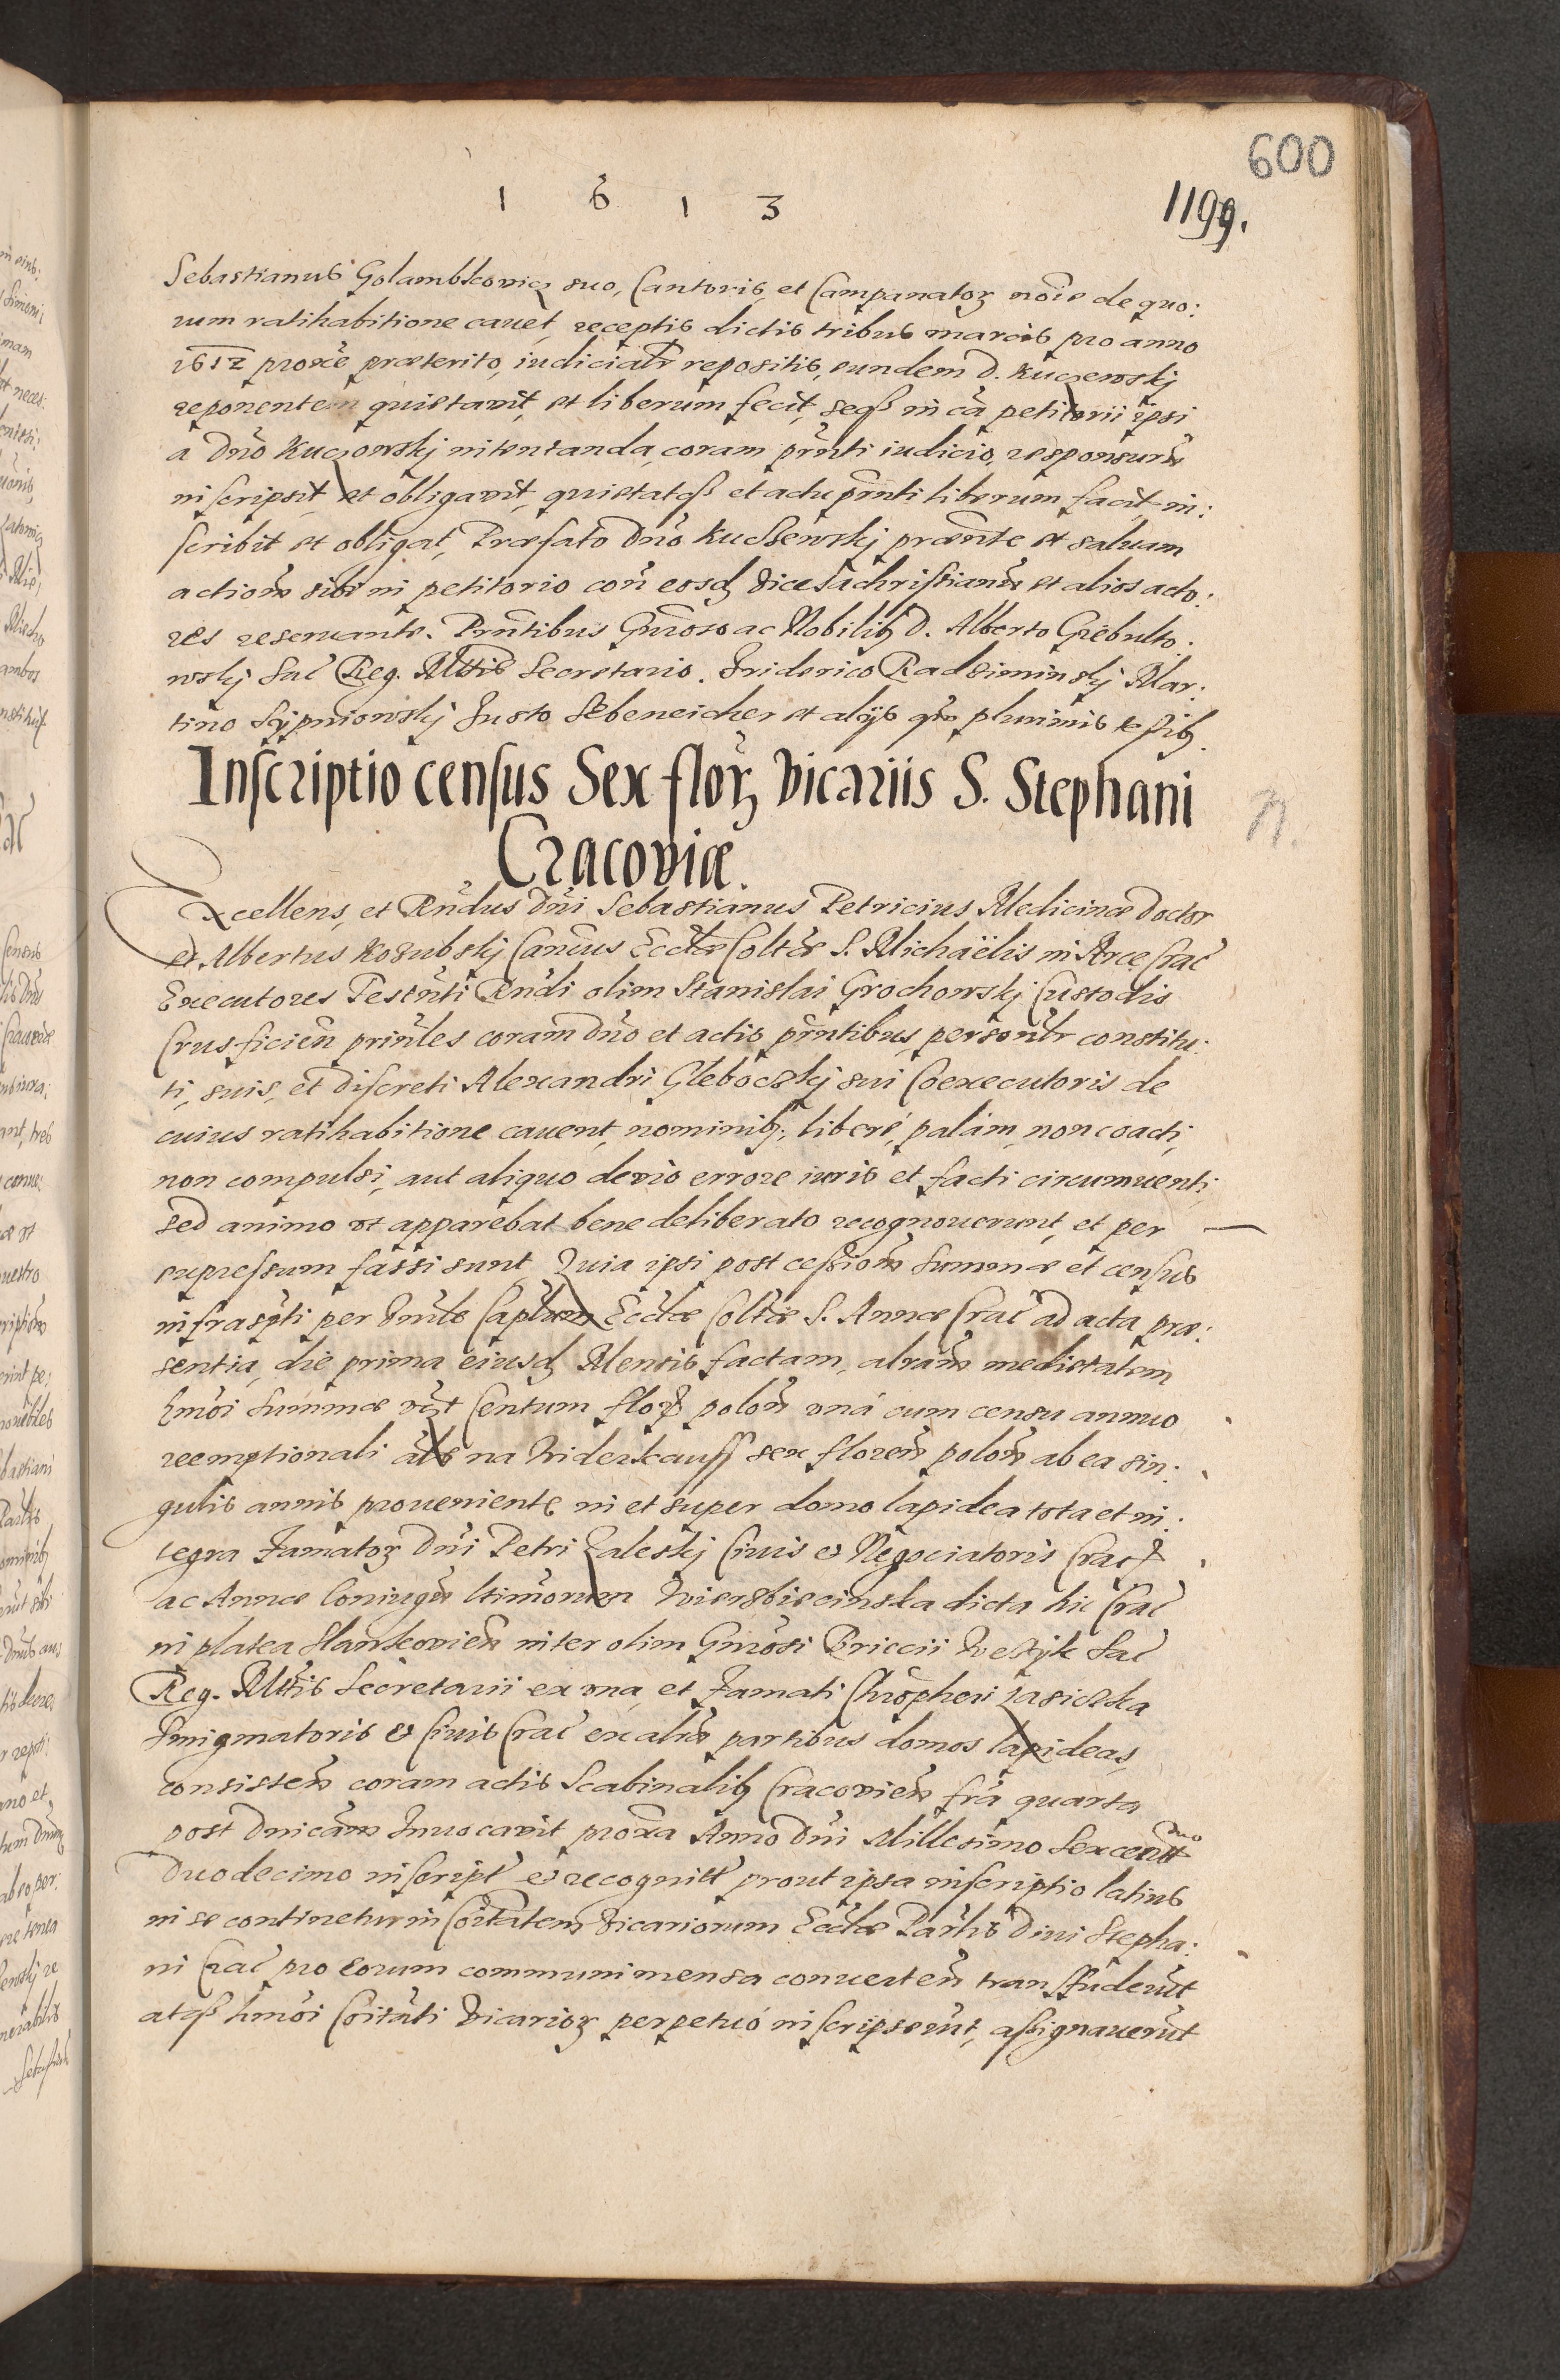 600
1 6 1 3
1199.
Sebastianus Golambkowicz suo, Cantoris, et Campanatorꝫ nōie de quo:
rum ratihabitione cauet, receptis dictis tribus marcis pro anno
1612 proxē præterito, iudicialr̄ repositis, eundem D. Kuczewskj
reponentem quietauit, et liberum fecit, seqꝫ in cā petitorii ipsi
a Dn̄o Kuczowskj intentanda, coram pr̄nti iudicio, responsurū
inscripsit, et obligauit, quietatqꝫ et actu pr̄nti liberum facit, in:
scribit et obligat, Præfato Dn̄o Kuczewskj præn̄te et saluam
actionē sibi in petitorio con̄ eosdꝫ Vicesachristianū et alios acto:
res reseruante. Prn̄tibus Gn̄roso ac Nobilibꝫ D. Alberto Grebulto:
wskj Sac̄ Reg. Mttis Secretario. Friderico Radziminskj Mar:
tino Sypniowskj Justo Sebeneicher et alijs qꝫ plurimis testibꝫ.
Inscriptio census Sex florꝫ vicariis S. Stephani
Cracoviæ.
Excellens, et Rn̄dus Dn̄i Sebastianus Petricius Medicinæ Doctor
et Albertus Kozubskj Can̄cus Eccl̄æ Coll̄tæ S. Michaëlis in Arce Crac̄
Executores Testn̄ti Rn̄di olim Stanislai Grochowskj Custodis
Crusficien̄ prin̄les coram Dn̄o et actis pr̄ntibus personlr̄ constitu:
ti, suis, et Discreti Alexandri Glebockj sui Coexecutoris de
cuius ratihabitione cauent, nominibꝫ, liberé, palám, non coacti,
non compulsi, aut aliquo devio errore iuris et facti circumuenti,
sed animo vt apparebat bene deliberato recognouerunt, et per
expressum fassi sunt, Quia ipsi post cessionē summæ et census
infrasp̄ti per Vn̄le Caplum Eccl̄æ Coll̄tæ S. Annæ Crac̄ ad acta præ:
sentia, die prima eiusdꝫ Mensis factam, alteram medietatem
hmōi summæ vꝫt Centum florꝫ polon̄ vná cum censu annuo
reemptionali ab̄s na widerkauff sex floren̄ polon̄ ab ea sin:
gulis annis proueniente in et super domo lapidea tota et in:
tegra Famatorꝫ Dn̄i Petri Zaleskj Ciuis et Negociatoris Crac̄
ac Annæ Coniugū ltimorum Wierzbiecinska dicta hic Crac̄
in platea Slawkovien̄ inter olim Gn̄rosi Briccii Wezyk Sac̄
Reg. Mttis Secretarii ex vna, et Famati Chrōpheri Zasiczka
Smigmatoris et Ciuis Crac̄ ex aliis partibus domos lapideas,
consisten̄ coram actis Scabinalibꝫ Cracovien̄ fr̄a quarta
post Dn̄icam Invocauit proxā Anno Dn̄i Millesimo Sexcentmo
Duodecimo inscript̄ et recognit̄ prout ipsa inscriptio latius
in se continetur in Cōitatem Vicariorum Eccl̄æ Parlis Diui Stepha:
ni Crac̄ pro eorum communi mensa conuerten̄ transfuderūt
atqꝫ hmōi Cōitati Vicariorꝫ perpetuó inscripserūt, assignauerūt